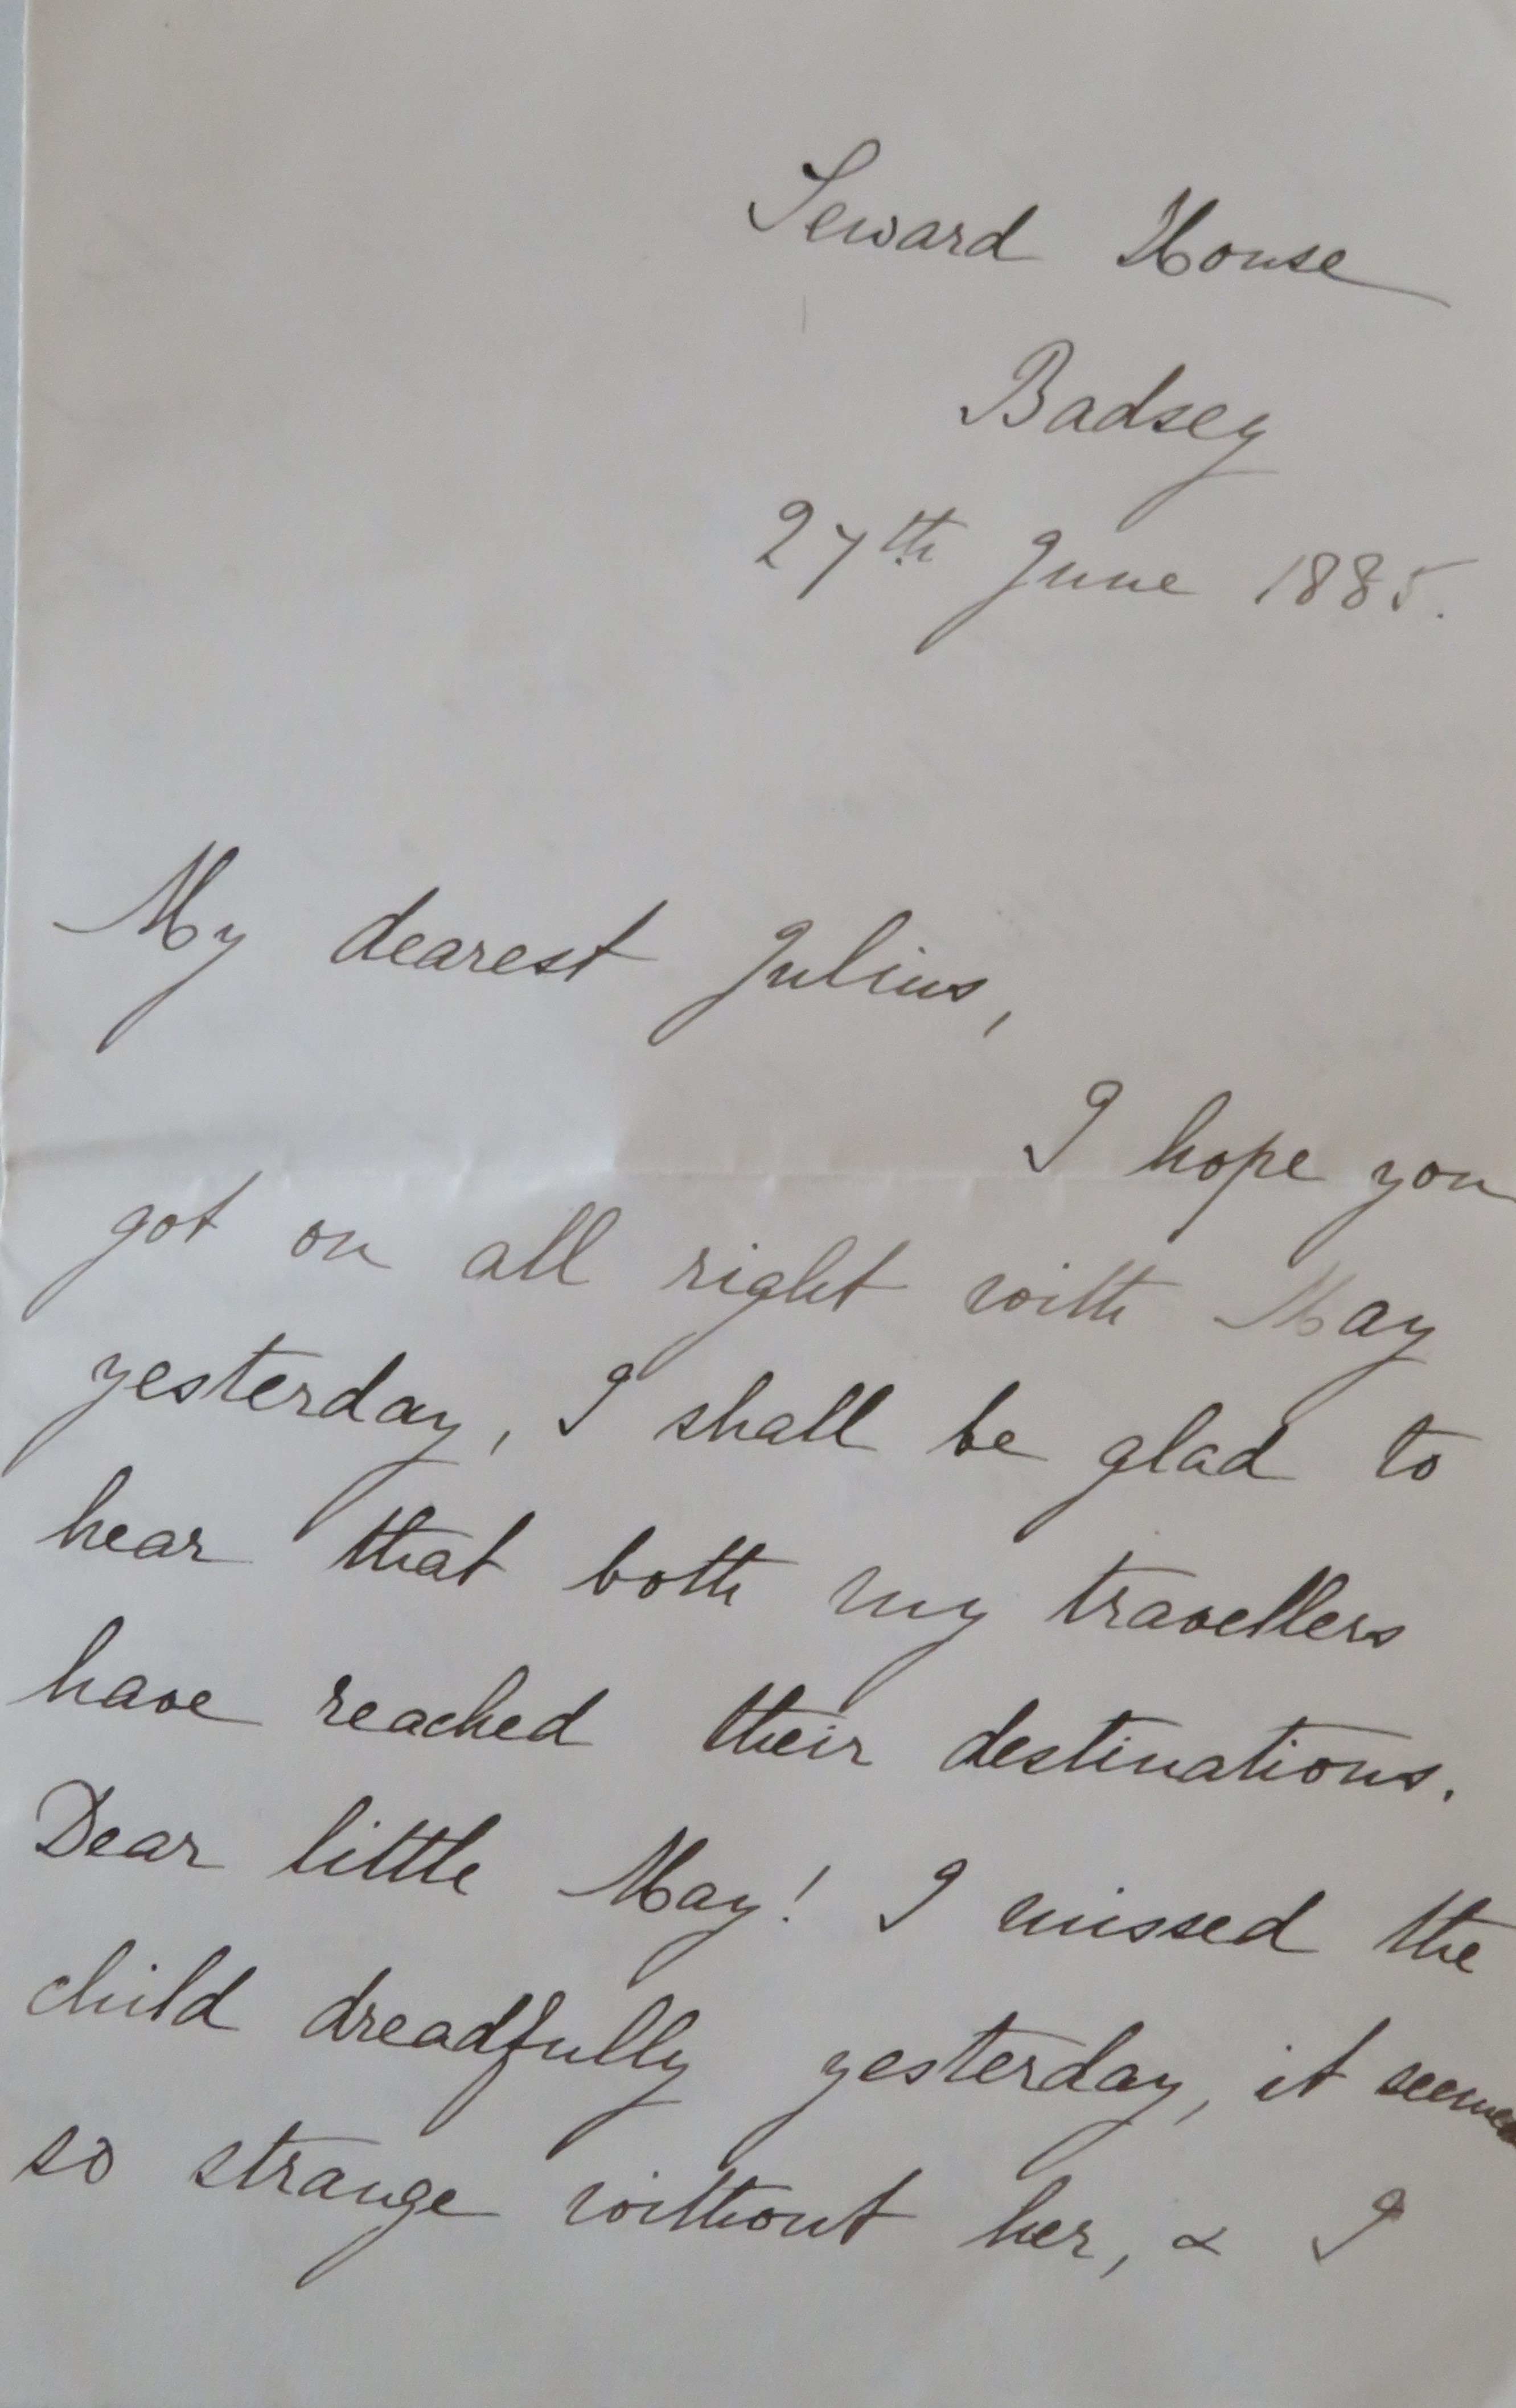 Seward House
Badsey
27th June 1885.
My dearest Julius,
I hope you
got on all right with May
yesterday, I shall be glad to
hear that both my travellers
have reached their destinations.
Dear little May! I missed the
child dreadfully yesterday, it seemed
so strange without her, & I